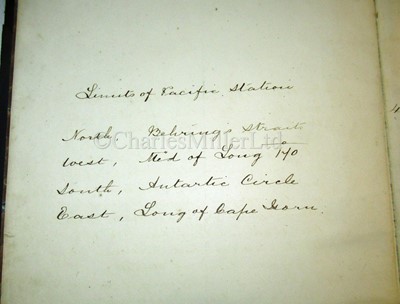 Limits of Pacific Station
North, Behring's Strait
West, Med of Long 140
South, Antartic Circle
East, Long of Cape Horn.
©CharlesMillerLtd